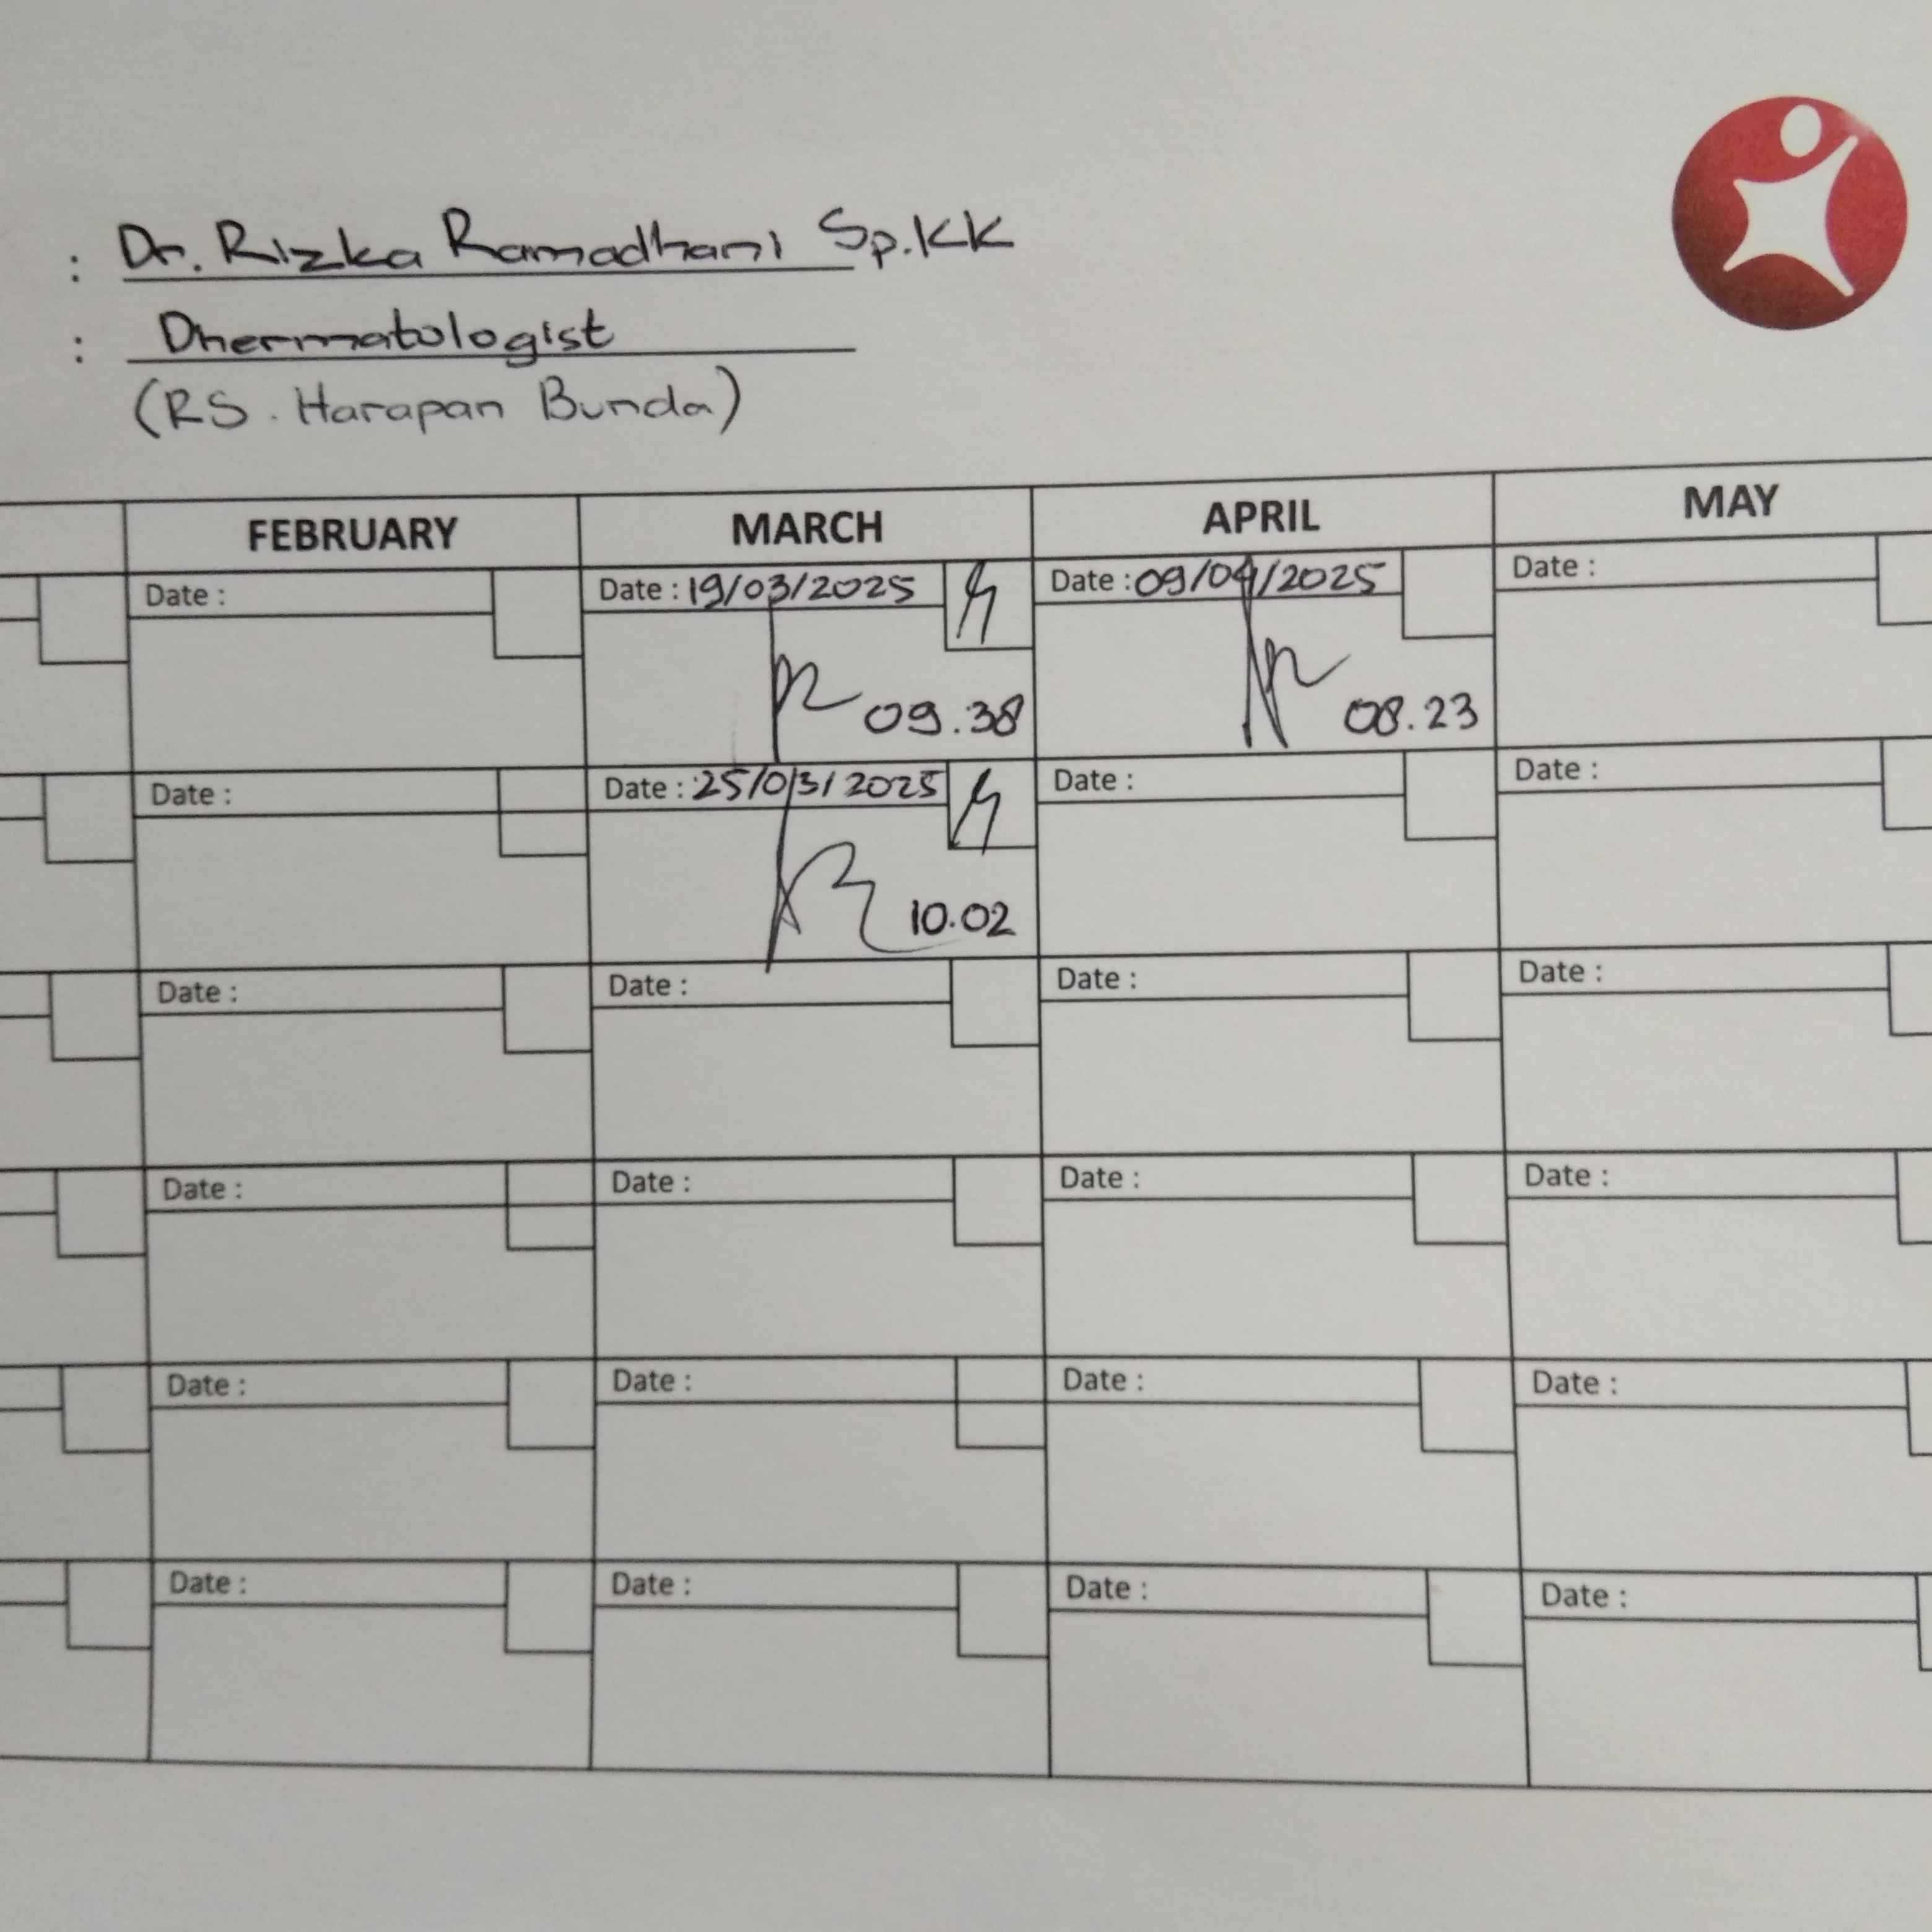 : Dr. Rizka Ramadhani Sp.KK
: Dhermatologist
(RS. Harapan Bunda)
FEBRUARY MARCH APRIL MAY
Date : Date : 19/03/2025 Date : 09/04/2025 Date :
09.38 08.23
Date : Date : 25/03/2025 Date : Date :
10.02
Date : Date : Date : Date :
Date : Date : Date : Date :
Date : Date : Date : Date :
Date : Date : Date : Date :